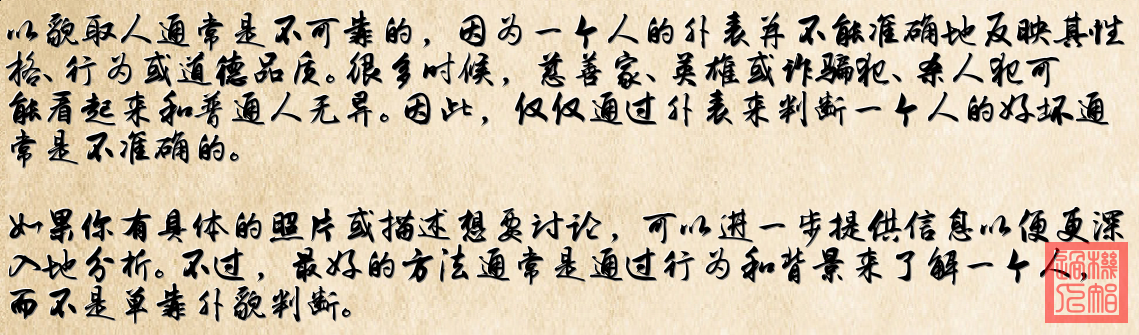 以貌取人通常是不可靠的，因为一个人的外表并不能准确地反映其性
格、行为或道德品质。很多时候，慈善家、英雄或诈骗犯、杀人犯可
能看起来和普通人无异。因此，仅仅通过外表来判断一个人的好坏通
常是不准确的。
如果你有具体的照片或描述想要讨论，可以进一步提供信息以便更深
入地分析。不过，最好的方法通常是通过行为和背景来了解一个人，
而不是单靠外貌判断。